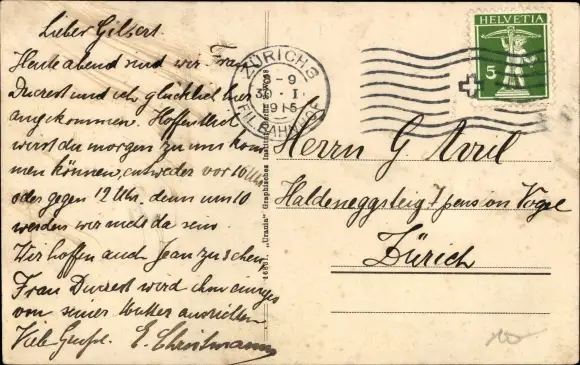 Lieber Gilbert.
Heute abend sind wir, Frau
Ducrest und ich glücklich hier
angekommen. Hoffentlich
wirst du morgen zu uns kom
men können, entweder vor 10 Uhr
oder gegen 12 Uhr, denn um 10
werden wir nicht da sein.
Wir hoffen auch Jean zu sehen,
Frau Ducrest wird ihm einiges
von seiner Mutter ausrichten
Viele Grüsse. E. Christmann
14667. "Urania" Graphisches Institut
ZÜRICH 3
30. I.
1915
FIL. BAHNHOF
HELVETIA
5
Herrn G. Avril
Haldeneggsteig 7 pension Vogel
Zürich